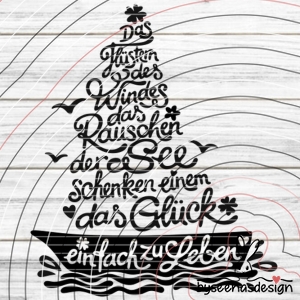 Das
Flüstern
des
Windes
das
Rauschen
der See
schenken einem
das Glück
einfach zu Leben!
byseeriasdesign